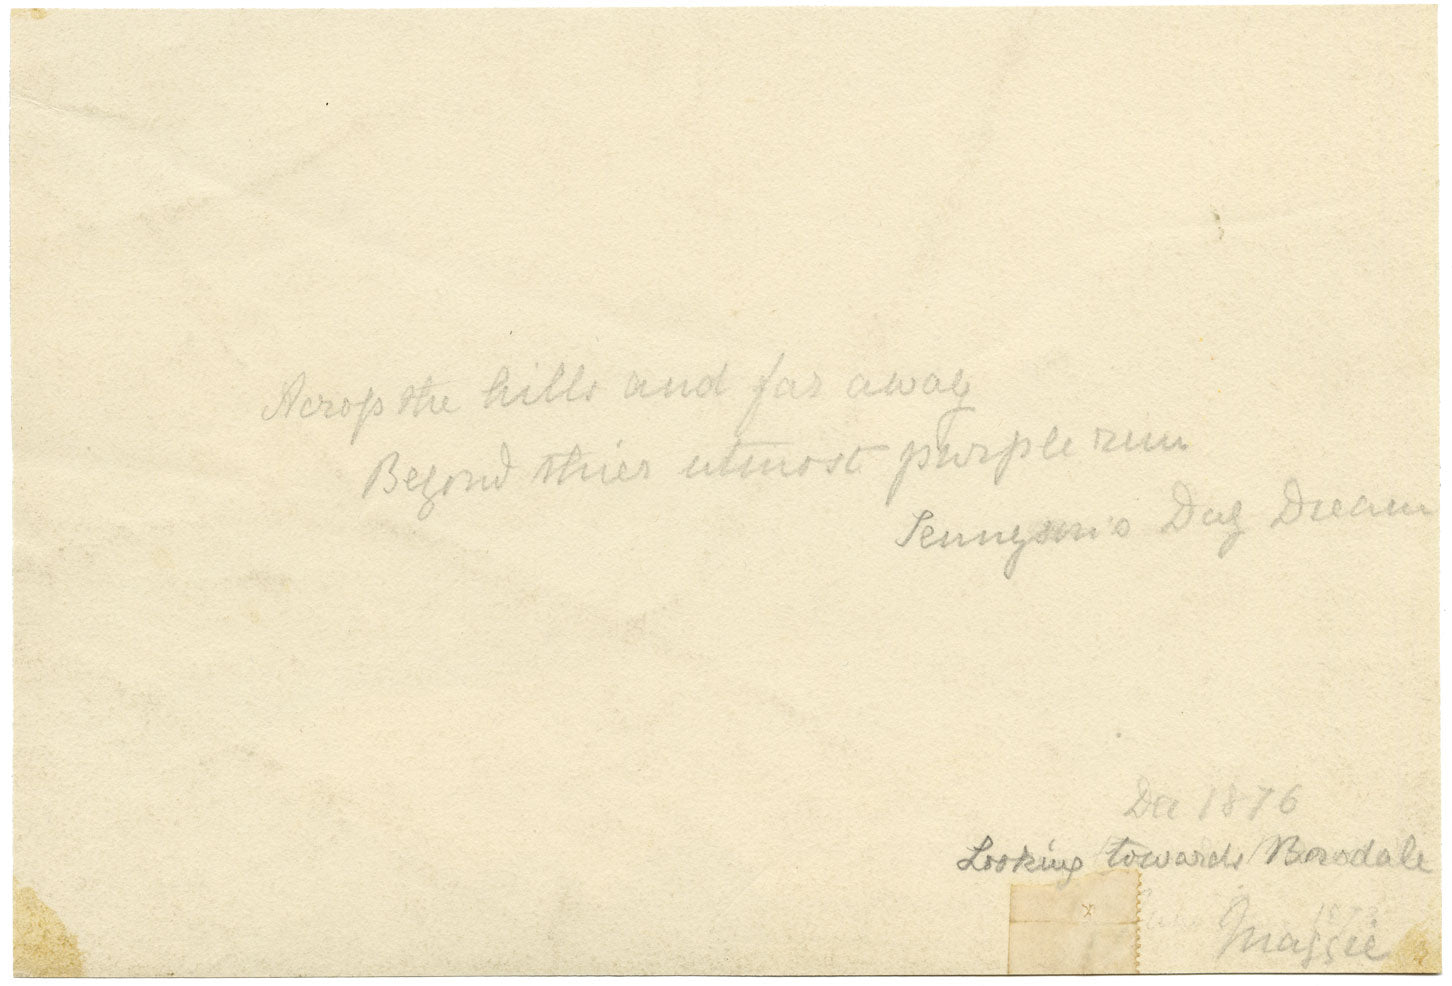 Across the hills and far away
Beyond thier utmost purple rim
Tennyson's Day Dream
Dec 1876
Looking towards Borodale
1873
Maggie